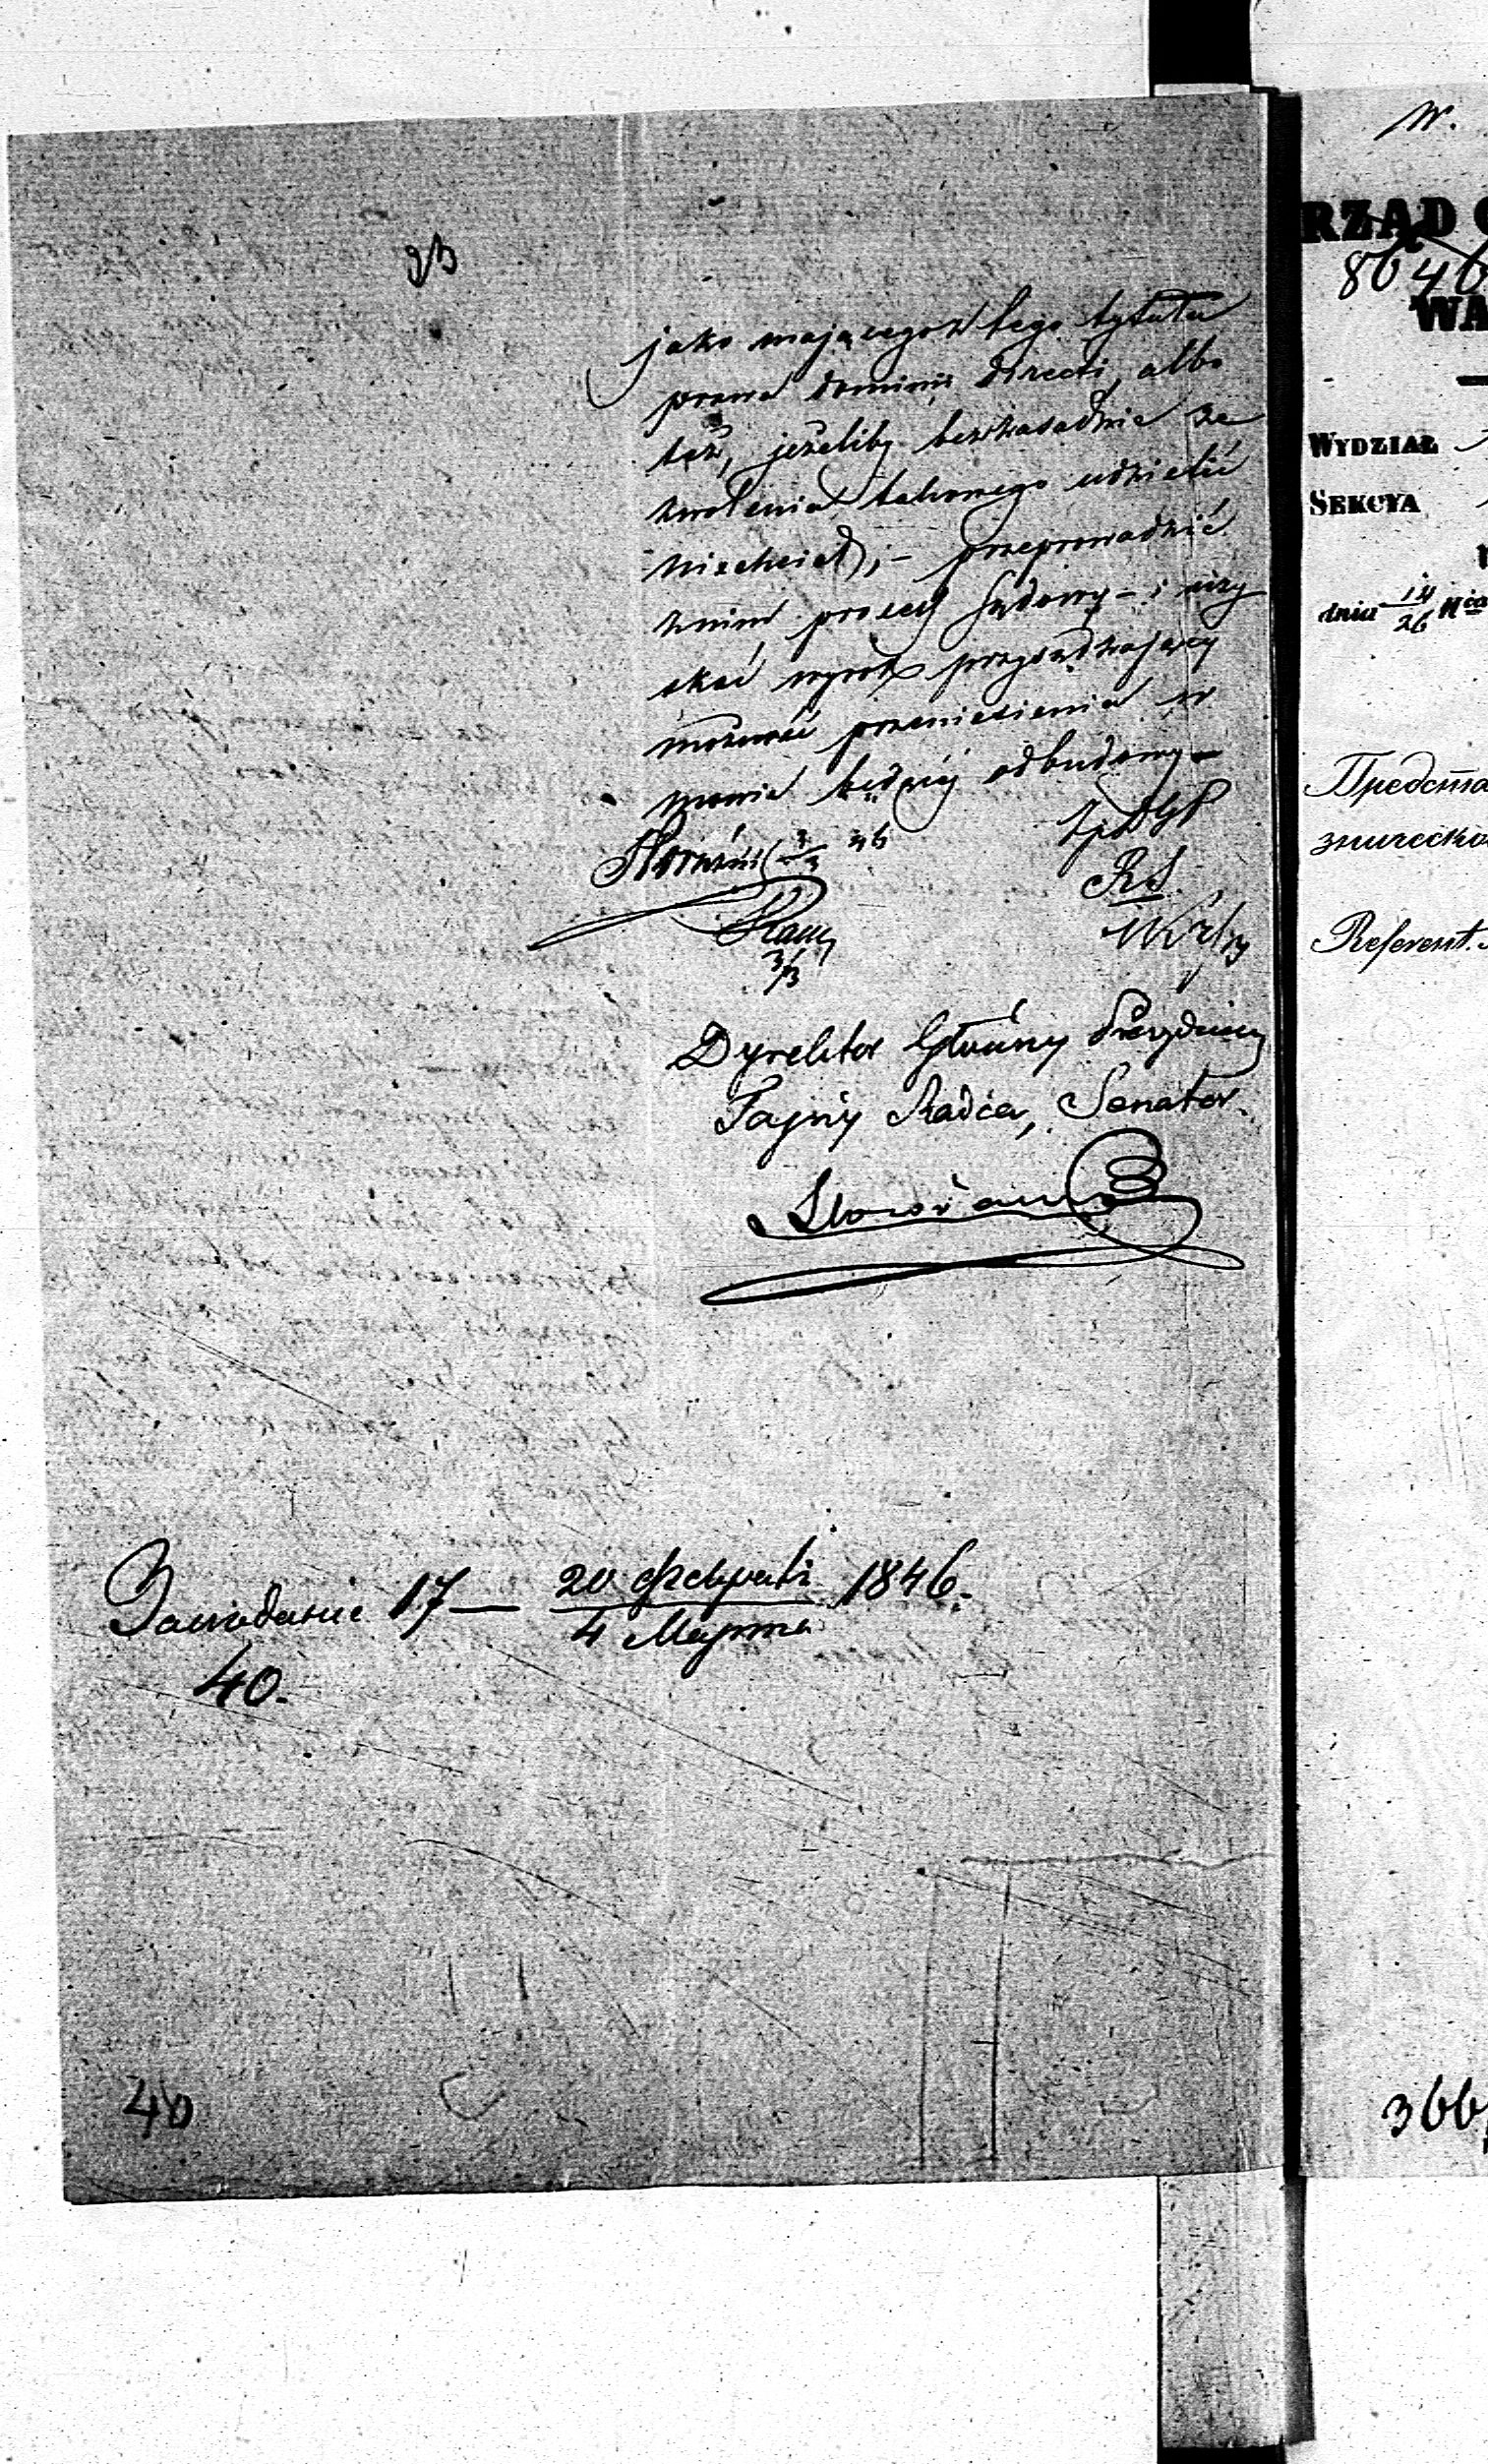 jako mającego z tego tytułu
prawa dominii directi, albo
też, jeżeliby bezzasadnie ze
zwolenia takowego udzielić
niechciał; – przeprowadzić
z nim proces sądowy – i uzy
skać wyrok przysądzający
możność przeniesienia w
mowie będącej odbudowy –
3/3 46
RS
3/3
Dyrektor Główny Prezydujący
Tajny Radca, Senator.
17 — 20 Февраля / 4 Марта 1846.
40.
40
W.
RZĄD G
8646
WA
WYDZIAŁ
SEKCYA
dnia 14/26 M
Предста
зническо
Referent.
366